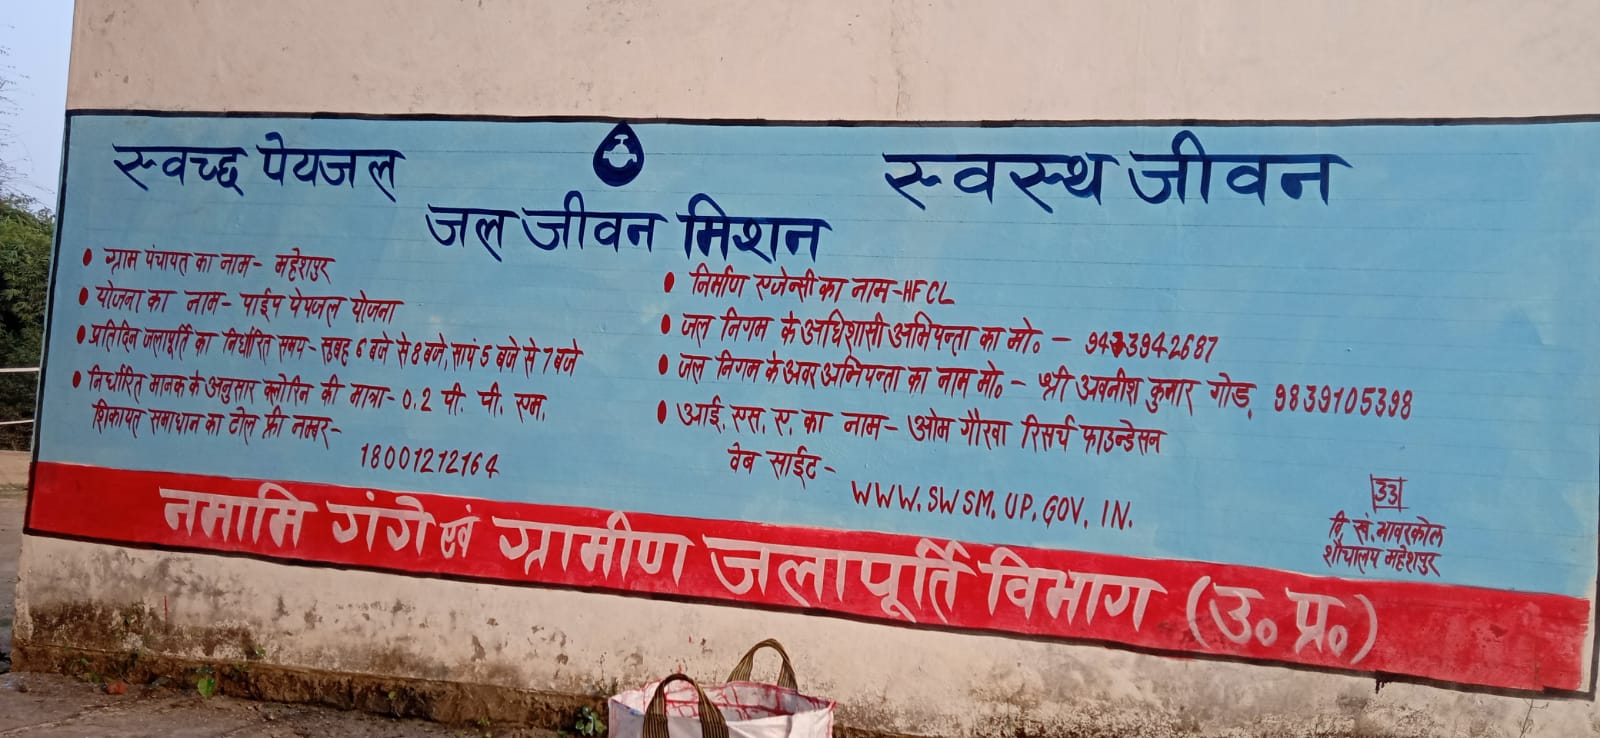 स्वच्छ पेयजल
स्वस्थ जीवन
जल जीवन मिशन
• ग्राम पंचायत का नाम- महेशपुर
• योजना का नाम- पाईप पेयजल योजना
• प्रतिदिन जलापूर्ति का निर्धारित समय- सुबह 6 बजे से 8 बजे, सायं 5 बजे से 7 बजे
• निर्धारित मानक के अनुसार क्लोरिन की मात्रा- 0.2 पी. पी. एम.
शिकायत समाधान का टोल फ्री नम्बर-
18001212164
• निर्माण एजेन्सी का नाम-HFCL
• जल निगम के अधिशासी अभियन्ता का मो० - 9473942687
• जल निगम के अवर अभियन्ता का नाम मो० - श्री अवनीश कुमार गोड़, 9839105398
• आई. एस. ए. का नाम- ओम गौरवा रिसर्च फाउन्डेसन
वेब साईट-
WWW.SWSM.UP.GOV.IN.
33
वि. खं. भावरकोल
शौचालय महेशपुर
नमामि गंगे एवं ग्रामीण जलापूर्ति विभाग (उ० प्र०)